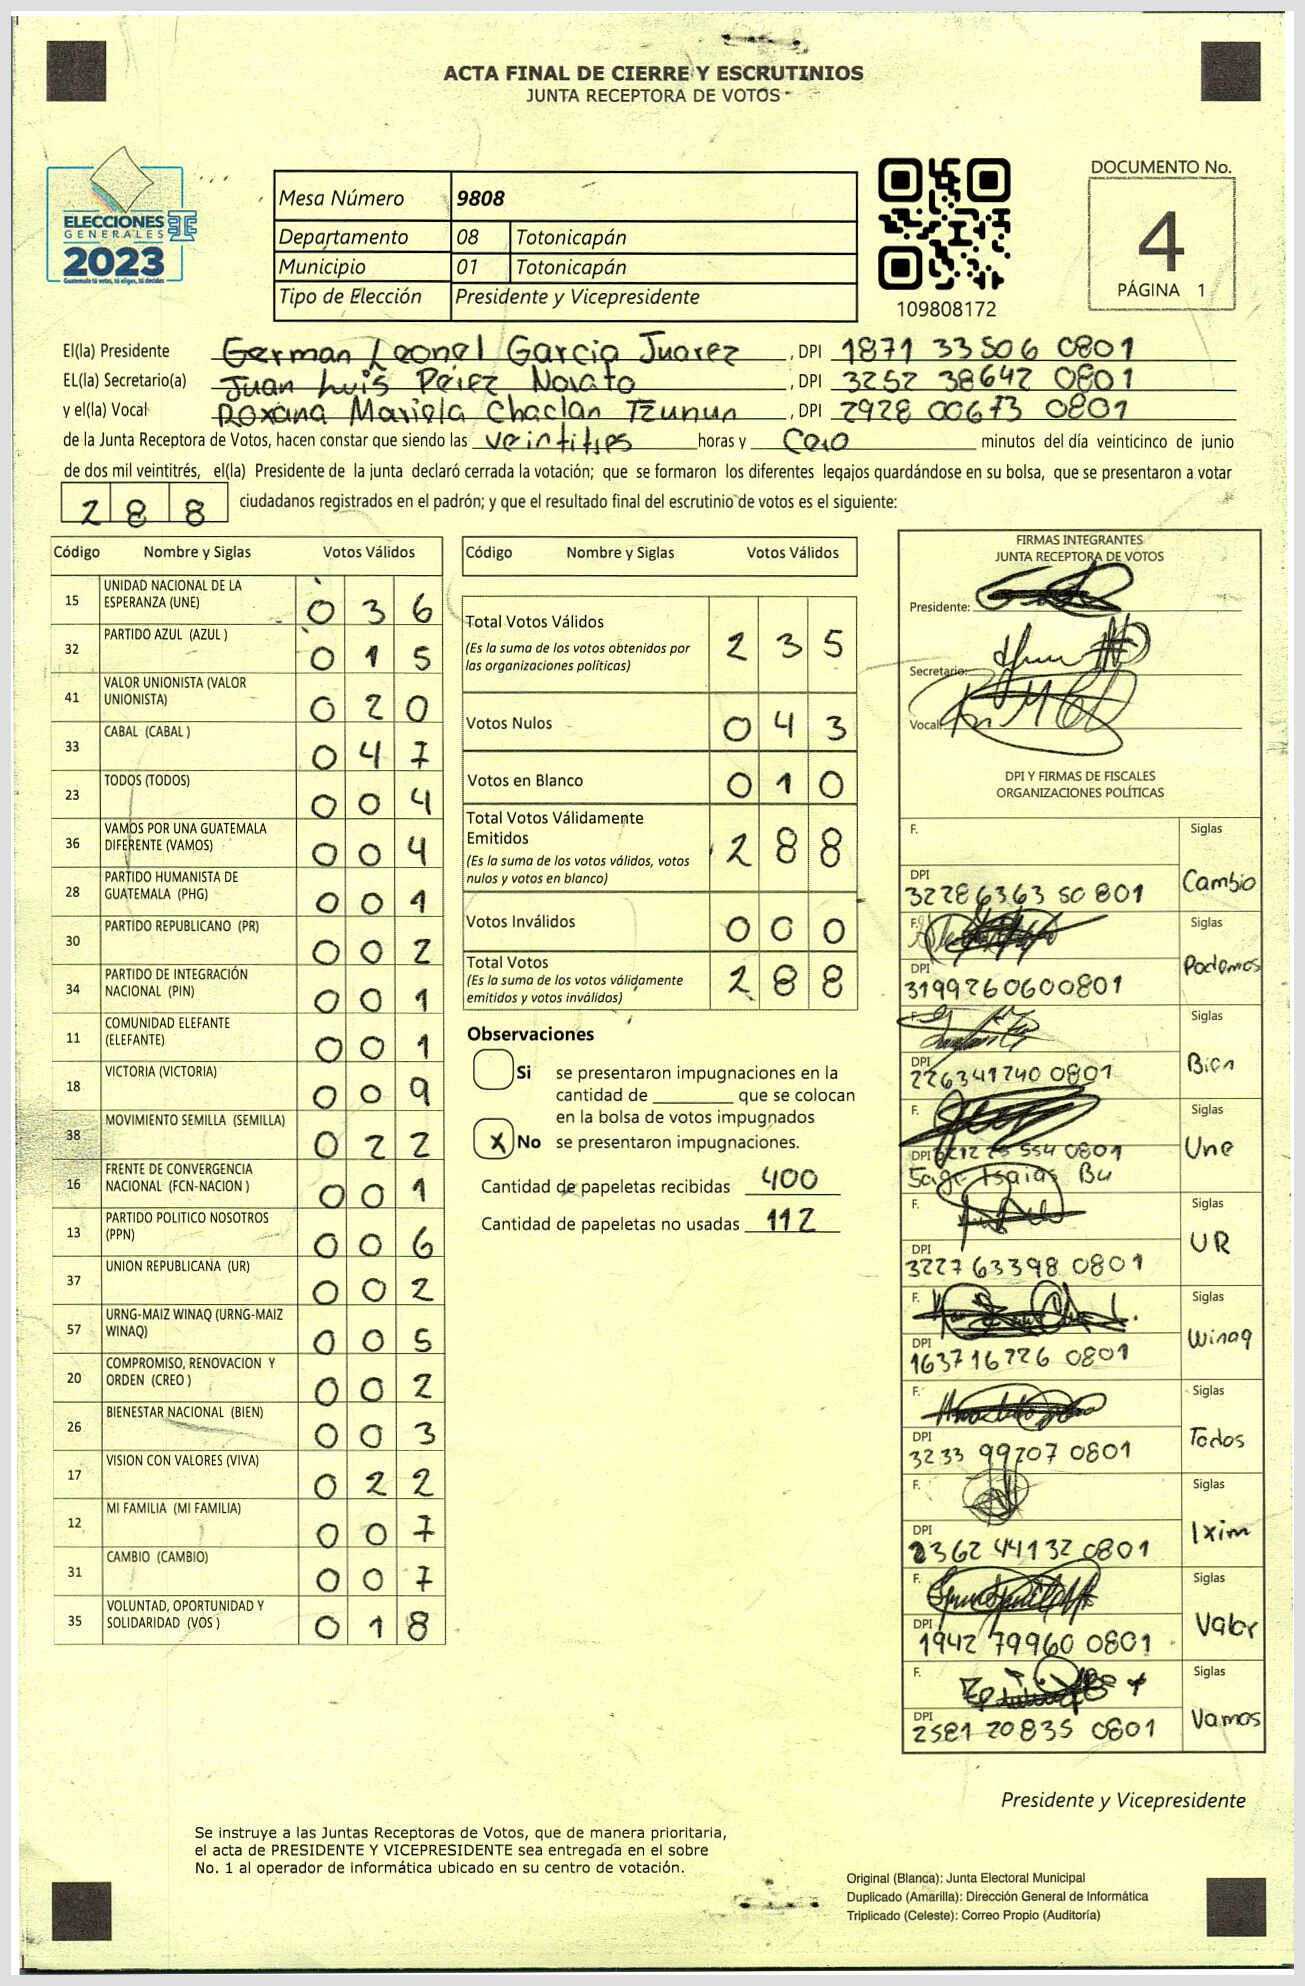 ACTA FINAL DE CIERRE Y ESCRUTINIOS
JUNTA RECEPTORA DE VOTOS
ELECCIONES
GENERALES
2023
Guatemala tú votas, tú eliges, tú decides
Mesa Número 9808
Departamento 08 Totonicapán
Municipio 01 Totonicapán
Tipo de Elección Presidente y Vicepresidente
109808172
DOCUMENTO No.
4
PÁGINA 1
El(la) Presidente German Leonel Garcia Juarez , DPI 1871 33506 0801
EL(la) Secretario(a) Juan Luis Pérez Novato , DPI 3252 38642 0801
y el(la) Vocal Roxana Mariela Chaclan Tzunun , DPI 2928 00673 0801
de la Junta Receptora de Votos, hacen constar que siendo las veintitres horas y cero minutos del día veinticinco de junio
de dos mil veintitrés, el(la) Presidente de la junta declaró cerrada la votación; que se formaron los diferentes legajos guardándose en su bolsa, que se presentaron a votar
288 ciudadanos registrados en el padrón; y que el resultado final del escrutinio de votos es el siguiente:
Código Nombre y Siglas Votos Válidos
15 UNIDAD NACIONAL DE LA ESPERANZA (UNE) 036
32 PARTIDO AZUL (AZUL ) 015
41 VALOR UNIONISTA (VALOR UNIONISTA) 020
33 CABAL (CABAL ) 047
23 TODOS (TODOS) 004
36 VAMOS POR UNA GUATEMALA DIFERENTE (VAMOS) 004
28 PARTIDO HUMANISTA DE GUATEMALA (PHG) 001
30 PARTIDO REPUBLICANO (PR) 002
34 PARTIDO DE INTEGRACIÓN NACIONAL (PIN) 001
11 COMUNIDAD ELEFANTE (ELEFANTE) 001
18 VICTORIA (VICTORIA) 009
38 MOVIMIENTO SEMILLA (SEMILLA) 022
16 FRENTE DE CONVERGENCIA NACIONAL (FCN-NACION ) 001
13 PARTIDO POLITICO NOSOTROS (PPN) 006
37 UNION REPUBLICANA (UR) 002
57 URNG-MAIZ WINAQ (URNG-MAIZ WINAQ) 005
20 COMPROMISO, RENOVACION Y ORDEN (CREO ) 002
26 BIENESTAR NACIONAL (BIEN) 003
17 VISION CON VALORES (VIVA) 022
12 MI FAMILIA (MI FAMILIA) 007
31 CAMBIO (CAMBIO) 007
35 VOLUNTAD, OPORTUNIDAD Y SOLIDARIDAD (VOS ) 018
Código Nombre y Siglas Votos Válidos
Total Votos Válidos 235
(Es la suma de los votos obtenidos por
las organizaciones políticas)
Votos Nulos 043
Votos en Blanco 010
Total Votos Válidamente
Emitidos 288
(Es la suma de los votos válidos, votos
nulos y votos en blanco)
Votos Inválidos 000
Total Votos 288
(Es la suma de los votos válidamente
emitidos y votos inválidos)
Observaciones
Si se presentaron impugnaciones en la
cantidad de ________ que se colocan
en la bolsa de votos impugnados
X No se presentaron impugnaciones.
Cantidad de papeletas recibidas 400
Cantidad de papeletas no usadas 112
FIRMAS INTEGRANTES
JUNTA RECEPTORA DE VOTOS
Presidente:
Secretario:
Vocal:
DPI Y FIRMAS DE FISCALES
ORGANIZACIONES POLÍTICAS
F. Siglas
DPI 32286363 50 801 Cambio
F. Siglas
DPI 3199260600801 Podemos
F. Siglas
DPI 226341240 0801 Bien
F. Siglas
DPI 554 0801 Une
F. Siglas
DPI 3227 63398 0801 UR
F. Siglas
DPI 163716226 0801 Winaq
F. Siglas
DPI 3233 99207 0801 Todos
F. Siglas
DPI 2362 44132 0801 Ixim
F. Siglas
DPI 1942 79960 0801 Valor
F. Siglas
DPI 2581 20835 0801 Vamos
Presidente y Vicepresidente
Se instruye a las Juntas Receptoras de Votos, que de manera prioritaria,
el acta de PRESIDENTE Y VICEPRESIDENTE sea entregada en el sobre
No. 1 al operador de informática ubicado en su centro de votación.
Original (Blanca): Junta Electoral Municipal
Duplicado (Amarilla): Dirección General de Informática
Triplicado (Celeste): Correo Propio (Auditoría)